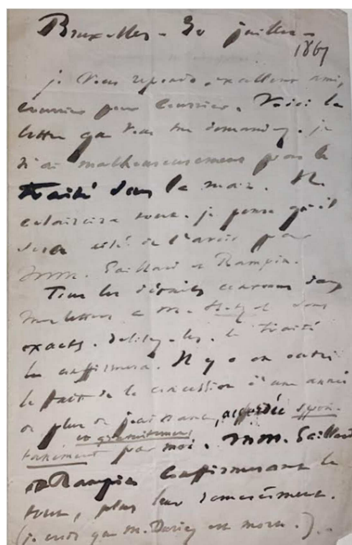 Bruxelles - 30 juillet -
1867
je vous réponds, excellent ami,
courrier pour courrier. Voici la
lettre que vous me demandez. je
n'ai malheureusement pas le
traité sous la main. Il
éclaircira tout. je pense qu'il
sera aisé de l'avoir par
MM. Gaillard et Rampin.
Tous les détails énoncés dans
ma lettre à M. Hetzel sont
exacts. le traité
les affirmera. Il y a en outre
le fait de la concession d'une année
de plus de jouissance, accordée spon-
et gratuitement
tanément par moi. MM. Gaillard
et Rampin affirmeront le
tout, plus leur
(je crois que M. est mort.)